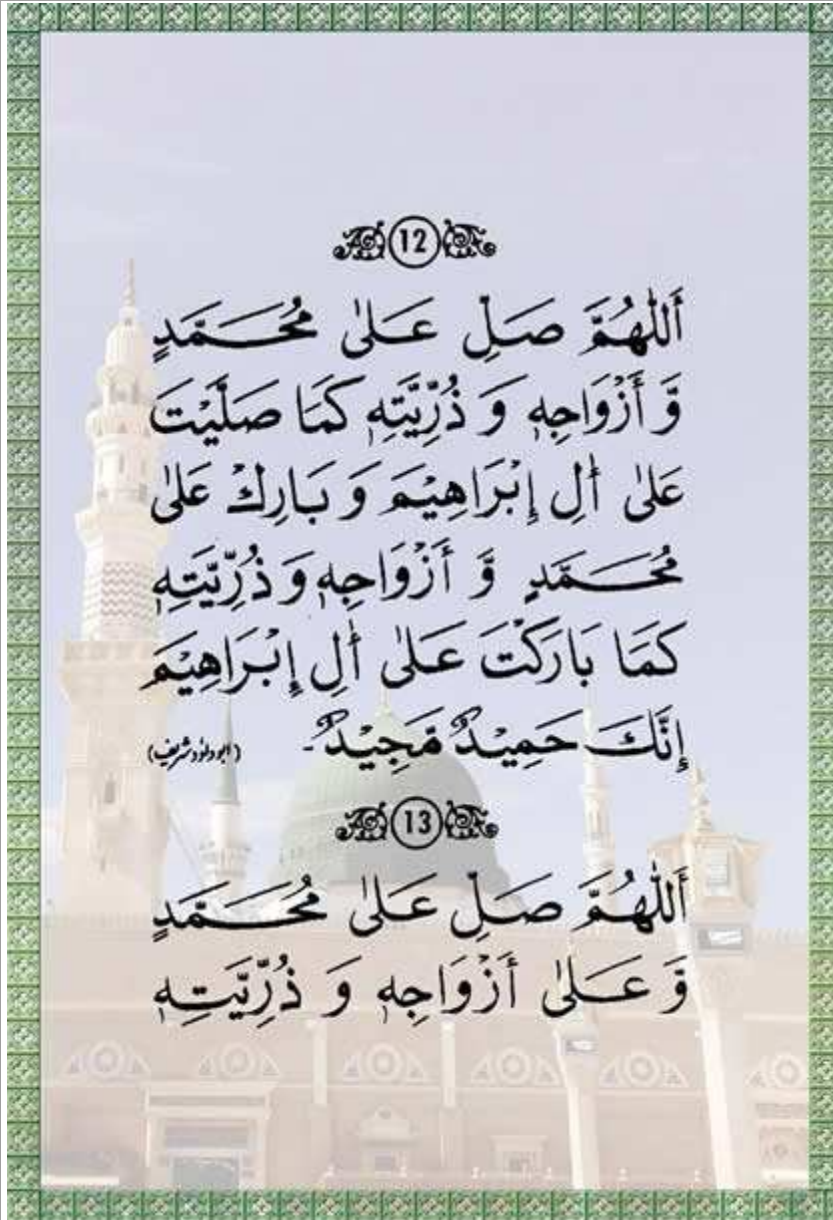 12
أَللّٰهُمَّ صَلِّ عَلٰى مُحَمَّدٍ
وَّ أَزْوَاجِهٖ وَ ذُرِّيَّتِهٖ كَمَا صَلَّيْتَ
عَلٰى أٰلِ إِبْرَاهِيْمَ وَ بَارِكْ عَلٰى
مُحَمَّدٍ وَّ أَزْوَاجِهٖ وَ ذُرِّيَّتِهٖ
كَمَا بَارَكْتَ عَلٰى أٰلِ إِبْرَاهِيْمَ
إِنَّكَ حَمِيْدٌ مَّجِيْدٌ۔ (ابوداؤد شریف)
13
أَللّٰهُمَّ صَلِّ عَلٰى مُحَمَّدٍ
وَّ عَلٰى أَزْوَاجِهٖ وَ ذُرِّيَّتِهٖ